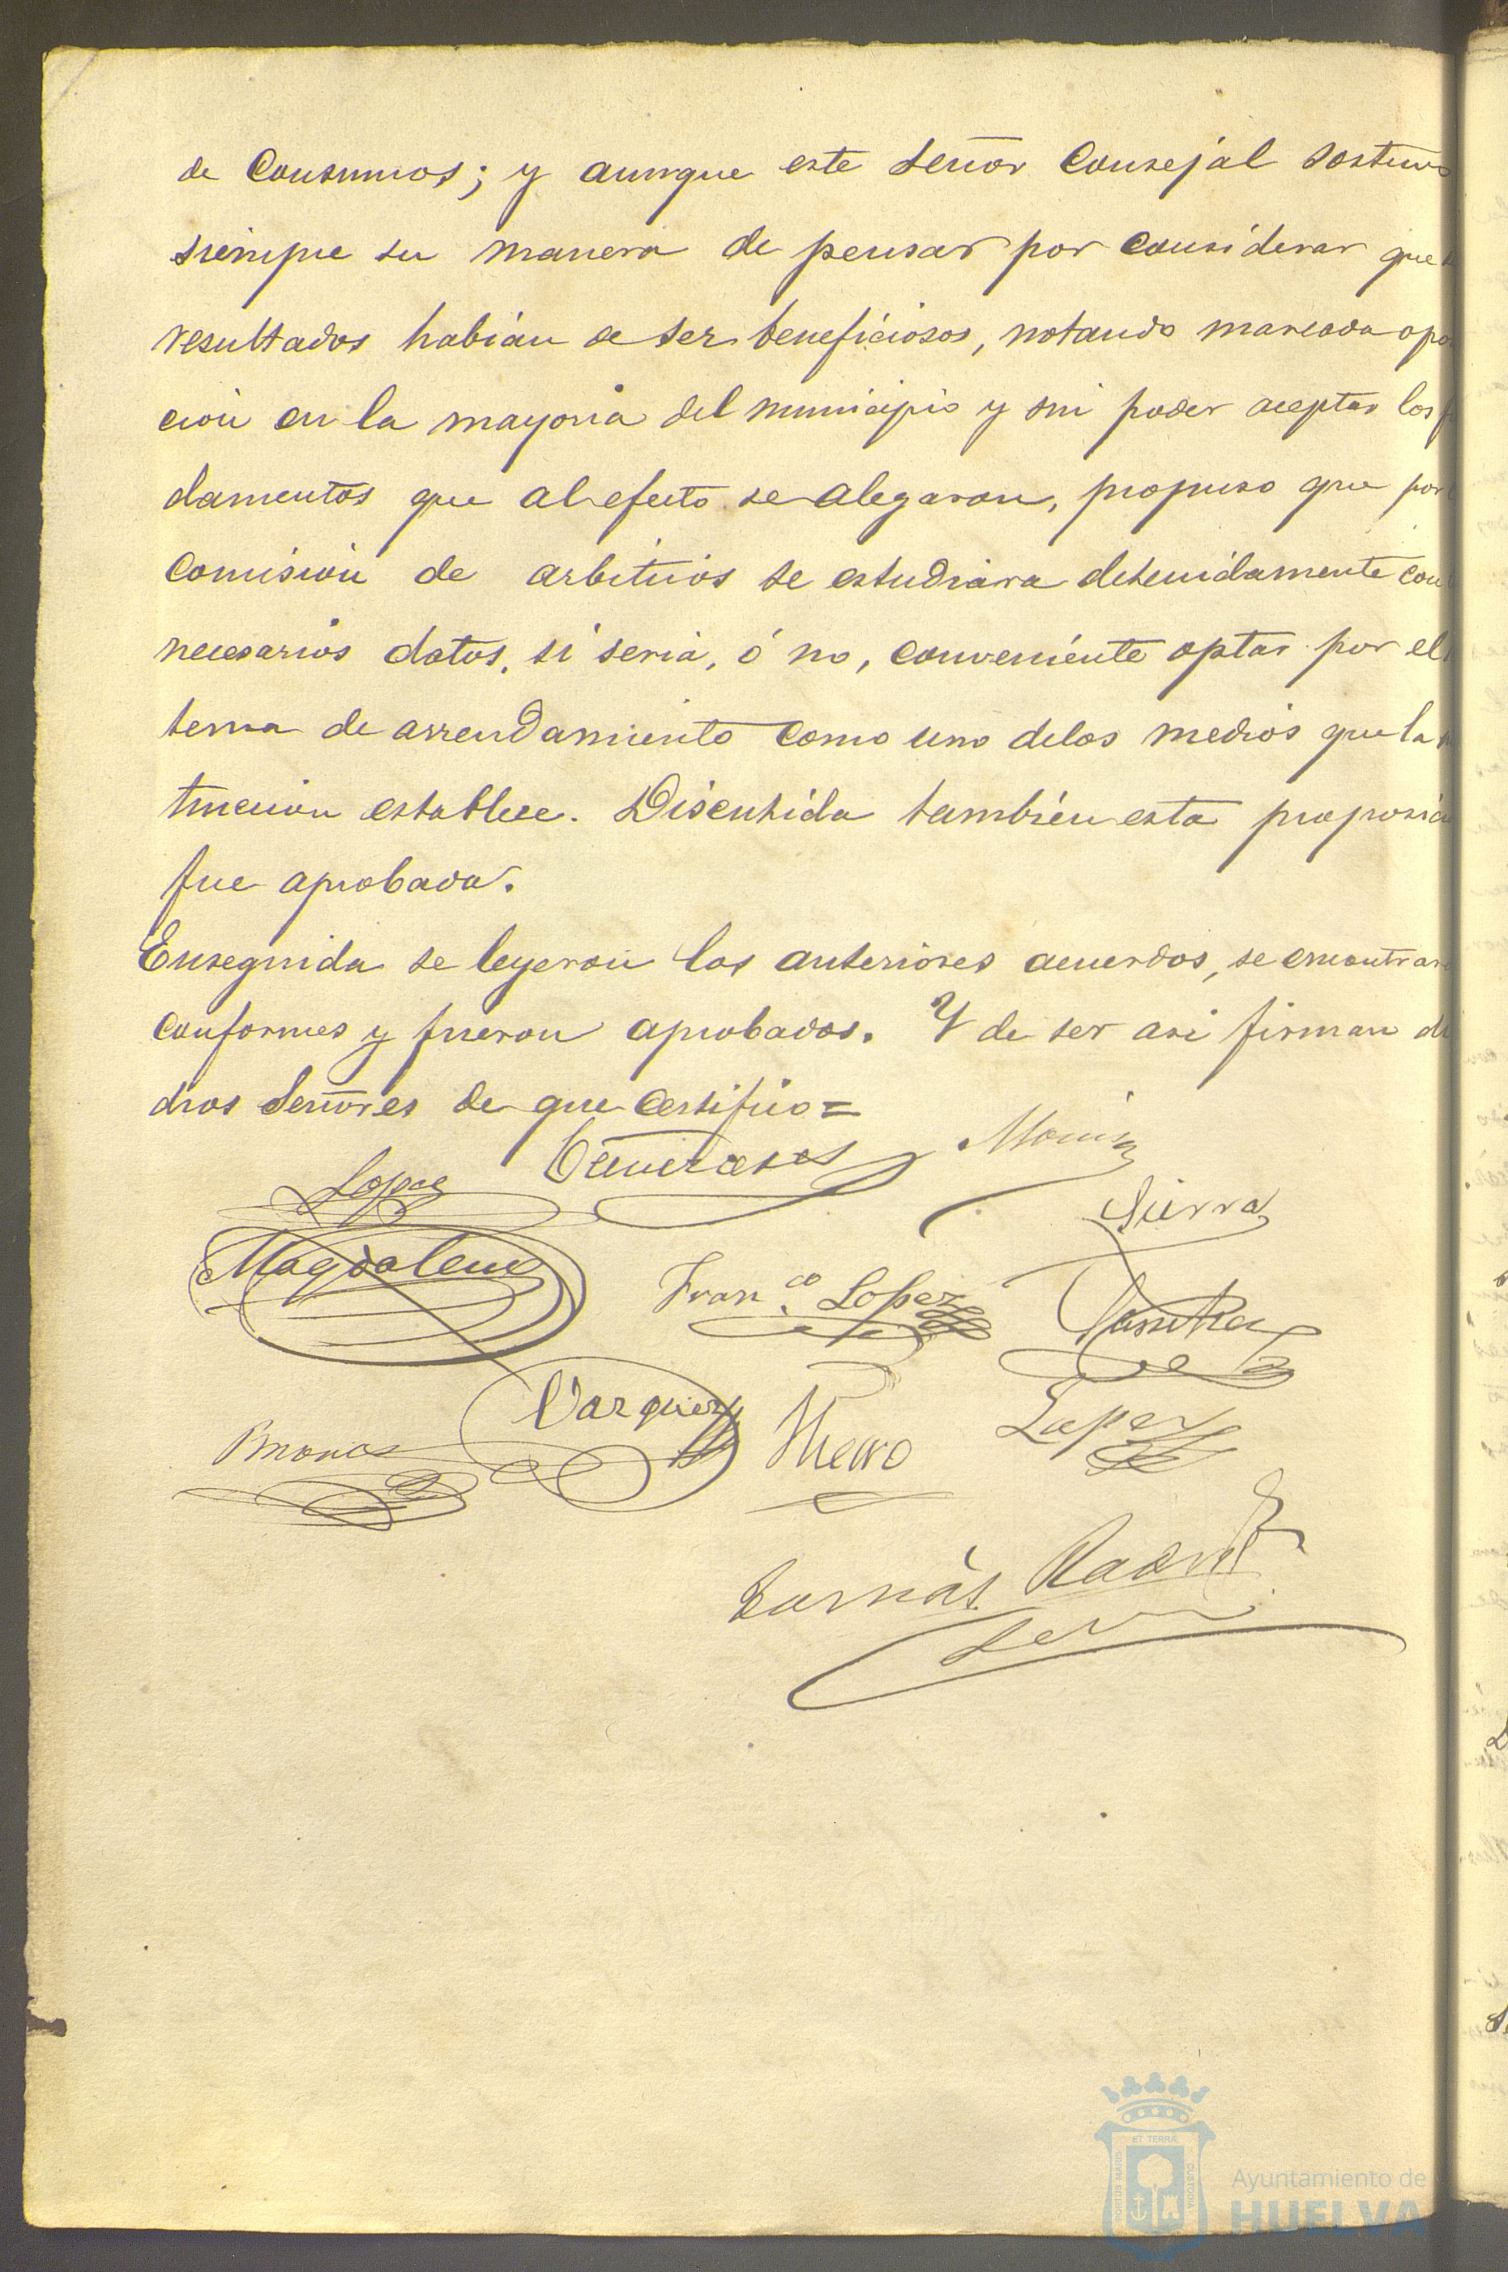 de Consumos; y aunque este Señor Consejal sostuvo
siempre su manera de pensar por considerar que
resultados habián de ser beneficiosos, notando marcada opo
ción en la mayoria del municipio y sin poder aceptar los
damentos que al efecto se alegaron, propuso que por
Comisión de arbitrios se estudiara detenidamente con
necesarios datos, si seria, ó no, conveniente optar por el
tema de arrendamiento como uno de los medios que la
trucción establece. Discutida también esta proposic
fue aprobada.
Enseguida se leyeron los anteriores acuerdos, se encontraro
conformes y fueron aprobados. Y de ser asi firman di
chos Señores de que certifico=
Lopez
Sierra
Magdalena
Fran.co Lopez
Vazquez
Lopez
ET TERRÆ
PORTUS MARIS
CUSTODIA
Ayuntamiento de
HUELVA